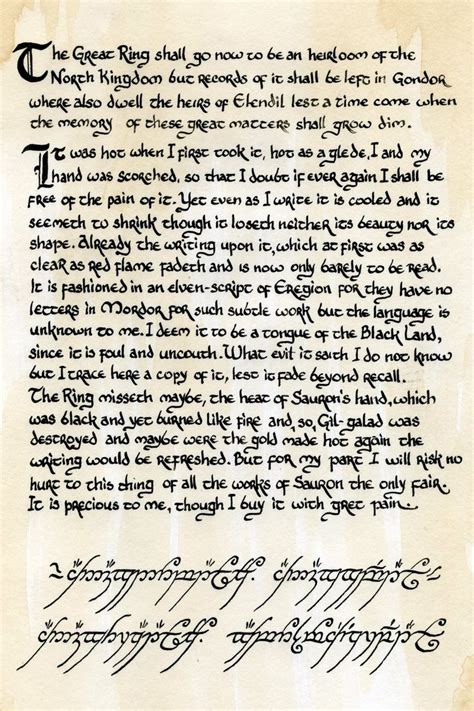 The Great Ring shall go now to be an heirloom of the
North Kingdom but records of it shall be left in Gondor
where also dwell the heirs of Elendil lest a time come when
the memory of these great matters shall grow dim.
It was hot when I first took it, hot as a glede, I and my
hand was scorched, so that I doubt if ever again I shall be
free of the pain of it. Yet even as I write it is cooled and it
seemeth to shrink though it loseth neither its beauty nor its
shape. Already the writing upon it, which at first was as
clear as red flame fadeth and is now only barely to be read.
It is fashioned in an elven-script of Eregion for they have no
letters in Mordor for such subtle work but the language is
unknown to me. I deem it to be a tongue of the Black Land,
since it is foul and uncouth. What evil it saith I do not know
but I trace here a copy of it, lest it fade beyond recall.
The Ring misseth maybe, the heat of Sauron's hand, which
was black and yet burned like fire and, so, Gil-galad was
destroyed and maybe were the gold made hot again the
writing would be refreshed. But for my part I will risk no
hurt to this thing of all the works of Sauron the only fair.
It is precious to me, though I buy it with gret pain.